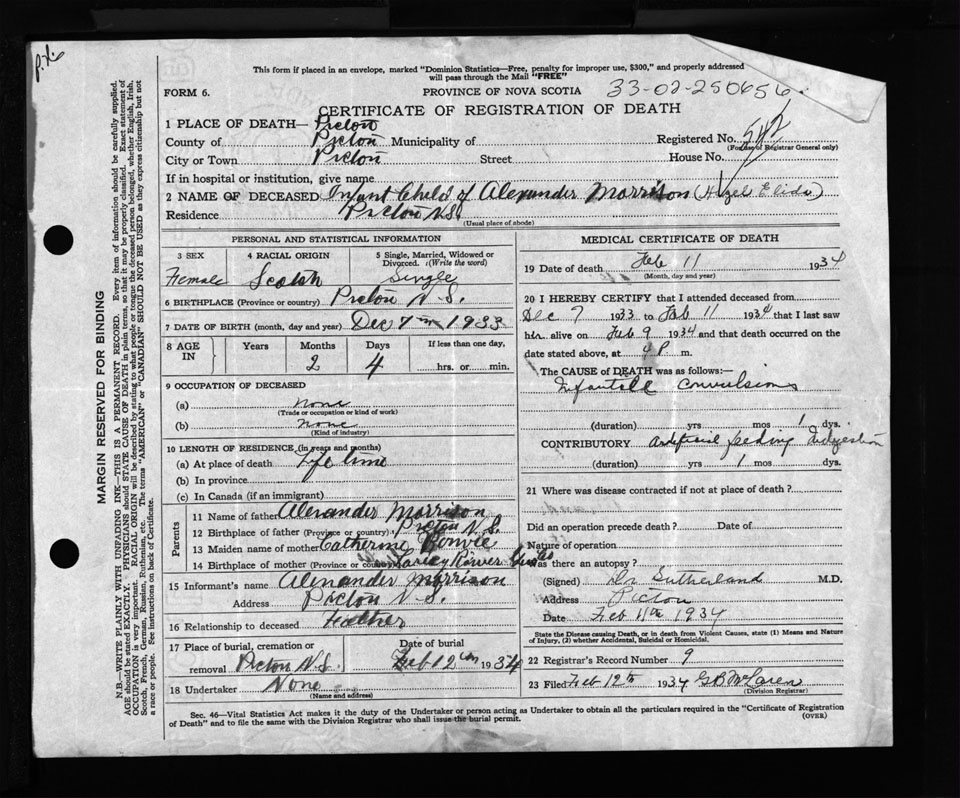 This form if placed in an envelope, marked "Dominion Statistics—Free, penalty for improper use, $300," and properly addressed
will pass through the Mail "FREE"
FORM 6.
PROVINCE OF NOVA SCOTIA
33-02-250656
CERTIFICATE OF REGISTRATION OF DEATH
1 PLACE OF DEATH— Pictou
Registered No. 542
(For use of Registrar General only)
County of Pictou Municipality of
City or Town Pictou Street House No.
If in hospital or institution, give name
2 NAME OF DECEASED Infant Child of Alexander Morrison (Hazel Elida)
Residence Pictou N.S.
(Usual place of abode)
PERSONAL AND STATISTICAL INFORMATION
3 SEX 4 RACIAL ORIGIN 5 Single, Married, Widowed or
Divorced. (Write the word)
Female Scotch Single
6 BIRTHPLACE (Province or country) Pictou N.S.
7 DATE OF BIRTH (month, day and year) Dec 7th 1933
8 AGE IN Years Months Days If less than one day,
2 4 hrs. or min.
9 OCCUPATION OF DECEASED
(a) none
(Trade or occupation or kind of work)
(b) none
(Kind of industry)
10 LENGTH OF RESIDENCE (in years and months)
(a) At place of death Life time
(b) In province
(c) In Canada (if an immigrant)
Parents
11 Name of father Alexander Morrison
12 Birthplace of father (Province or country) Pictou N.S.
13 Maiden name of mother Catherine
14 Birthplace of mother (Province or country) River
15 Informant's name Alexander Morrison
Address Pictou N.S.
16 Relationship to deceased Father
17 Place of burial, cremation or Date of burial
removal Pictou N.S. Feb 12th 1934
18 Undertaker None
(Name and address)
MEDICAL CERTIFICATE OF DEATH
19 Date of death Feb 11 1934
(Month, day and year)
20 I HEREBY CERTIFY that I attended deceased from
Dec 7 1933 to Feb 11 1934 that I last saw
her alive on Feb 9 1934 and that death occurred on the
date stated above, at P. m.
The CAUSE of DEATH was as follows:
Infantile convulsions
(duration) yrs mos 1 dys.
CONTRIBUTORY Artificial feeding Indigestion
(duration) yrs 1 mos dys.
21 Where was disease contracted if not at place of death?
Did an operation precede death? Date of
Nature of operation
Was there an autopsy?
(Signed) Sutherland M.D.
Address Pictou
Date Feb 11th 1934
State the Disease causing Death, or in death from Violent Causes, state (1) Means and Nature
of Injury, (2) whether Accidental, Suicidal or Homicidal.
22 Registrar's Record Number 9
23 Filed Feb 12th 1934 G B McLaren
(Division Registrar)
Sec. 46—Vital Statistics Act makes it the duty of the Undertaker or person acting as Undertaker to obtain all the particulars required in the "Certificate of Registration
of Death" and to file the same with the Division Registrar who shall issue the burial permit.
(OVER)
MARGIN RESERVED FOR BINDING
N.B.—WRITE PLAINLY WITH UNFADING INK—THIS IS A PERMANENT RECORD. Every item of information should be carefully supplied.
AGE should be stated EXACTLY. PHYSICIANS should STATE CAUSE OF DEATH in plain terms, so that it may be properly classified. Exact statement of
OCCUPATION is very important. RACIAL ORIGIN will be described by stating to what people or tongue the deceased person belonged, whether English, Irish,
Scotch, French, German, Russian, Ruthenian, etc. The terms "AMERICAN" or "CANADIAN" SHOULD NOT BE USED as they express citizenship but not
a race or people. See instructions on back of Certificate.